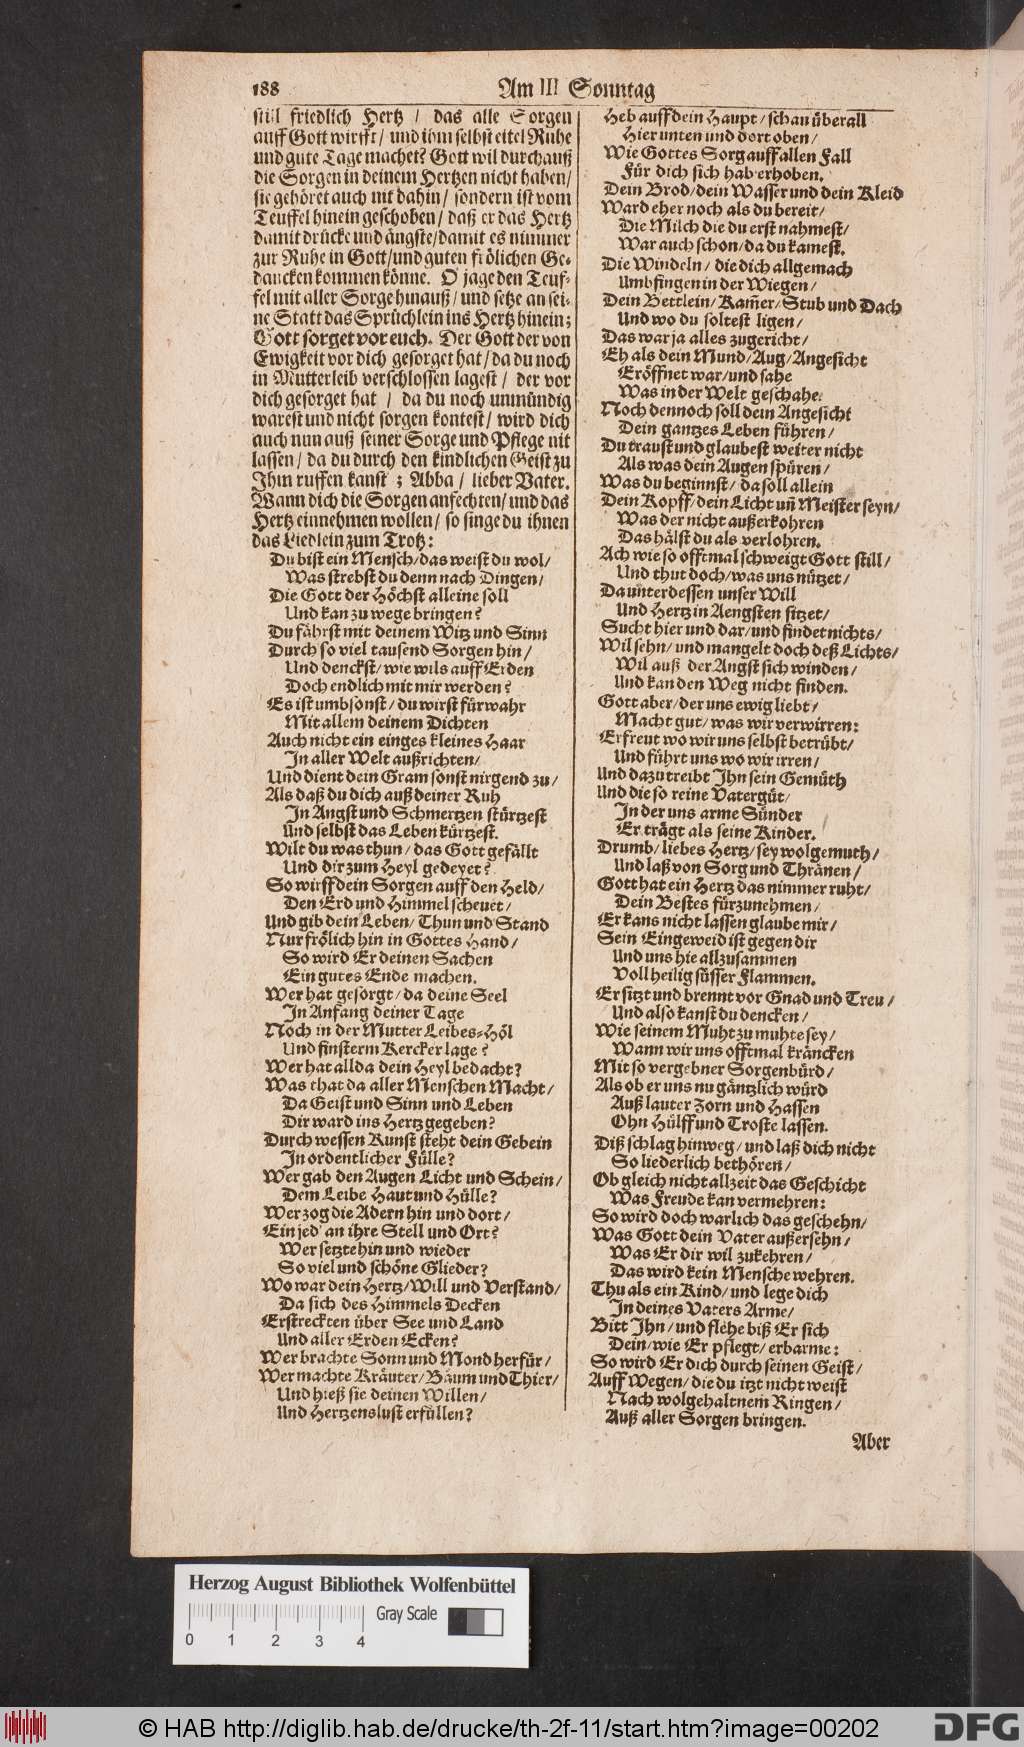 188
Am III Sonntag
still friedlich Hertz / das alle Sorgen
auff Gott wirfft / und ihm selbst eitel Ruhe
und gute Tage machet? Gott wil durchauß
die Sorgen in deinem Hertzen nicht haben /
sie gehöret auch nit dahin / sondern ist vom
Teuffel hinein geschoben / daß er das Hertz
damit drücke und ängste / damit es nimmer
zur Ruhe in Gott / und guten frölichen Ge-
dancken kommen könne. O jage den Teuf-
fel mit aller Sorge hinauß / und setze an sei-
ne Statt das Sprüchlein ins Hertz hinein;
Gott sorget vor euch. Der Gott der von
Ewigkeit vor dich gesorget hat / da du noch
in Mutterleib verschlossen lagest / der vor
dich gesorget hat / da du noch unmündig
warest und nicht sorgen kontest / wird dich
auch nun auß seiner Sorge und Pflege nit
lassen / da du durch den kindlichen Geist zu
Ihm ruffen kanst ; Abba / lieber Vater.
Wann dich die Sorgen anfechten / und das
Hertz einnehmen wollen / so singe du ihnen
das Liedlein zum Trotz:
Du bist ein Mensch / das weist du wol /
Was strebst du denn nach Dingen /
Die Gott der Höchst alleine soll
Und kan zu wege bringen?
Du fährst mit deinem Witz und Sinn
Durch so viel tausend Sorgen hin /
Und denckst / wie wils auff Erden
Doch endlich mit mir werden?
Es ist umbsonst / du wirst fürwahr
Mit allem deinem Dichten
Auch nicht ein einges kleines Haar
In aller Welt außrichten /
Und dient dein Gram sonst nirgend zu /
Als daß du dich auß deiner Ruh
In Angst und Schmertzen stürtzest
Und selbst das Leben kürtzest.
Wilt du was thun / das Gott gefällt
Und dir zum Heyl gedeyet?
So wirff dein Sorgen auff den Held /
Den Erd und Himmel scheuet /
Und gib dein Leben / Thun und Stand
Nur frölich hin in Gottes Hand /
So wird Er deinen Sachen
Ein gutes Ende machen.
Wer hat gesorgt / da deine Seel
In Anfang deiner Tage
Noch in der Mutter Leibes-Höl
Und finsterm Kercker lage?
Wer hat allda dein Heyl bedacht?
Was that da aller Menschen Macht /
Da Geist und Sinn und Leben
Dir ward ins Hertz gegeben?
Durch wessen Kunst steht dein Gebein
In ordentlicher Fülle?
Wer gab den Augen Licht und Schein /
Dem Leibe Haut und Hülle?
Wer zog die Adern hin und dort /
Ein jed' an ihre Stell und Ort?
Wer setzte hin und wieder
So viel und schöne Glieder?
Wo war dein Hertz / Will und Verstand /
Da sich des Himmels Decken
Erstreckten über See und Land
Und aller Erden Ecken?
Wer brachte Sonn und Mond herfür /
Wer machte Kräuter / Bäum und Thier /
Und hieß sie deinen Willen /
Und Hertzenslust erfüllen?
Heb auff dein Haupt / schau überall
Hier unten und dort oben /
Wie Gottes Sorg auff allen Fall
Für dich sich hab erhoben.
Dein Brod / dein Wasser und dein Kleid
Ward eher noch als du bereit /
Die Milch die du erst nahmest /
War auch schon / da du kamest.
Die Windeln / die dich allgemach
Umbfingen in der Wiegen /
Dein Bettlein / Kam̃er / Stub und Dach
Und wo du soltest ligen /
Das war ja alles zugericht /
Eh als dein Mund / Aug / Angesicht
Eröffnet war / und sahe
Was in der Welt geschahe.
Noch dennoch soll dein Angesicht
Dein gantzes Leben führen /
Du traust und glaubest weiter nicht
Als was dein Augen spüren /
Was du beginnst / da soll allein
Dein Kopff / dein Licht uñ Meister seyn /
Was der nicht außerkohren
Das hälst du als verlohren.
Ach wie so offtmal schweigt Gott still /
Und thut doch / was uns nützet /
Da unterdessen unser Will
Und Hertz in Aengsten sitzet /
Sucht hier und dar / und findet nichts /
Wil sehn / und mangelt doch deß Lichts /
Wil auß der Angst sich winden /
Und kan den Weg nicht finden.
Gott aber / der uns ewig liebt /
Macht gut / was wir verwirren:
Erfreut wo wir uns selbst betrübt /
Und führt uns wo wir irren /
Und dazu treibt Ihn sein Gemüth
Und die so reine Vatergüt /
In der uns arme Sünder
Er trägt als seine Kinder.
Drumb / liebes Hertz / sey wolgemuth /
Und laß von Sorg und Thränen /
Gott hat ein Hertz das nimmer ruht /
Dein Bestes fürzunehmen /
Er kans nicht lassen glaube mir /
Sein Eingeweid ist gegen dir
Und uns hie allzusammen
Voll heilig süsser Flammen.
Er sitzt und brennt vor Gnad und Treu /
Und also kanst du dencken /
Wie seinem Muht zu muhte sey /
Wann wir uns offtmal kräncken
Mit so vergebner Sorgenbürd /
Als ob er uns nu gäntzlich würd
Auß lauter Zorn und Hassen
Ohn Hülff und Troste lassen.
Diß schlag hinweg / und laß dich nicht
So liederlich bethören /
Ob gleich nicht allzeit das Geschicht
Was Freude kan vermehren:
So wird doch warlich das geschehn /
Was Gott dein Vater außersehn /
Was Er dir wil zukehren /
Das wird kein Mensche wehren.
Thu als ein Kind / und lege dich
In deines Vaters Arme /
Bitt Ihn / und flehe biß Er sich
Dein / wie Er pflegt / erbarme:
So wird Er dich durch seinen Geist /
Auff Wegen / die du itzt nicht weist
Nach wolgehaltnem Ringen /
Auß aller Sorgen bringen.
Aber
Herzog August Bibliothek Wolfenbüttel
Gray Scale
0 1 2 3 4
© HAB http://diglib.hab.de/drucke/th-2f-11/start.htm?image=00202
DFG